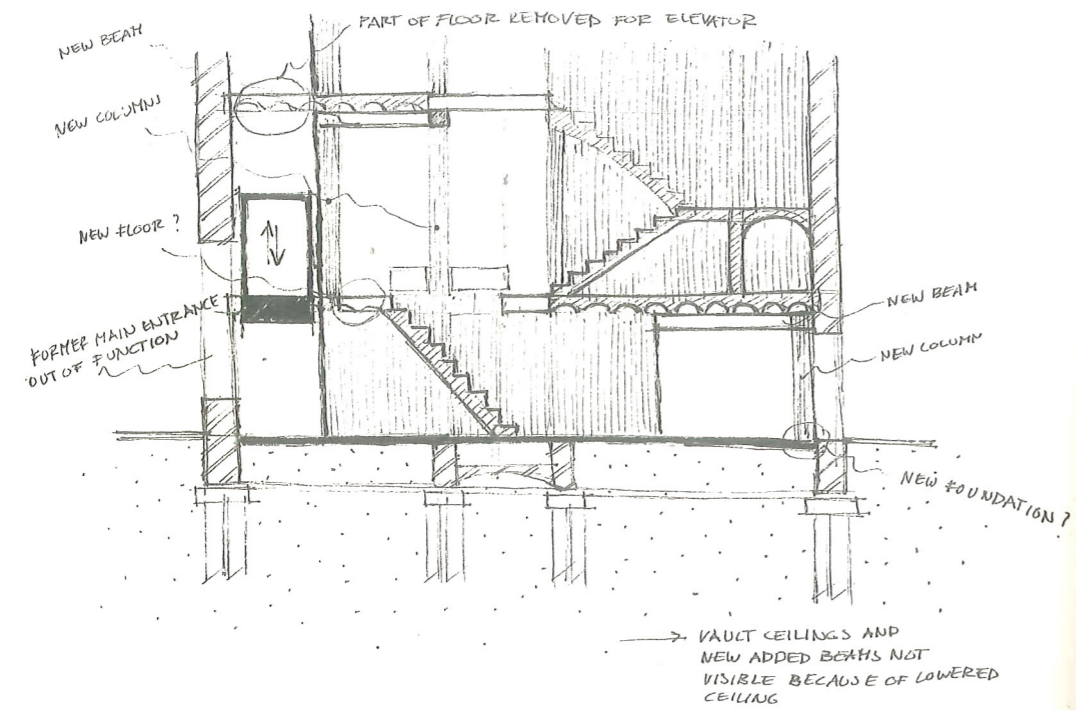 PART OF FLOOR REMOVED FOR ELEVATOR
NEW BEAM
NEW COLUMNS
NEW FLOOR ?
FORMER MAIN ENTRANCE
OUT OF FUNCTION
NEW BEAM
NEW COLUMN
NEW FOUNDATION ?
VAULT CEILINGS AND
NEW ADDED BEAMS NOT
VISIBLE BECAUSE OF LOWERED
CEILING